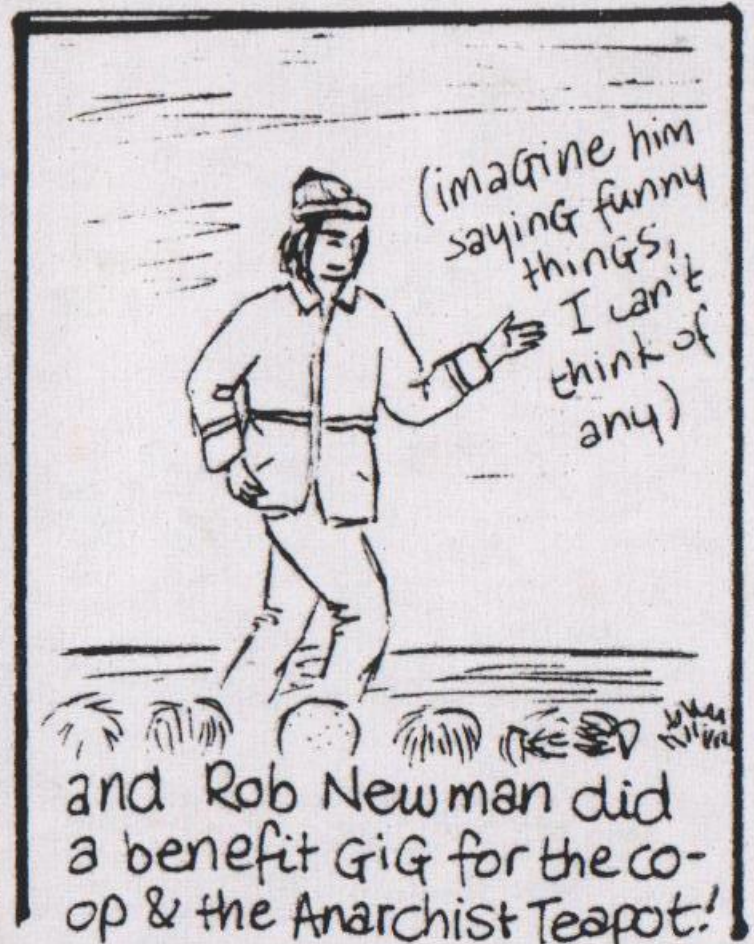 (imagine him
saying funny
things,
I can't
think of
any)
and Rob Newman did
a benefit GiG for the co-
op & the Anarchist Teapot!